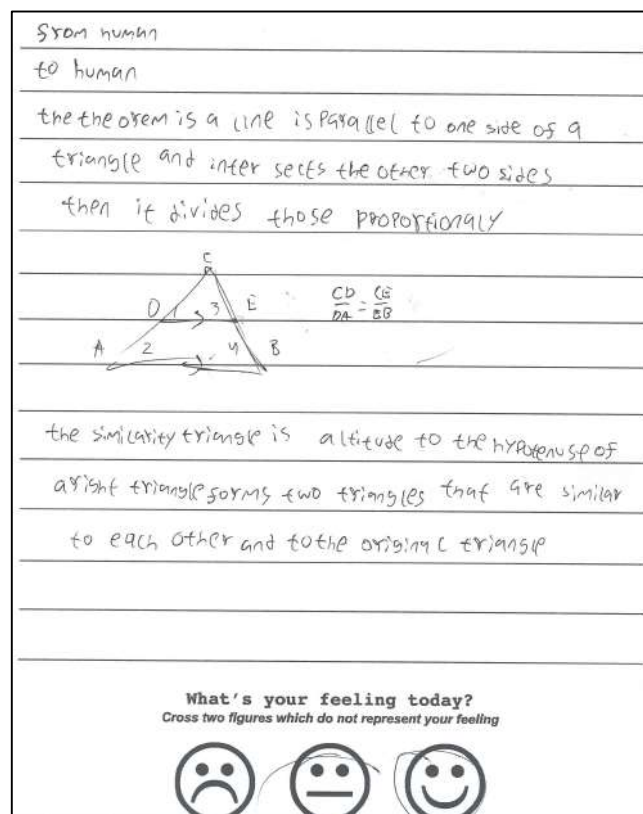 from human
to human
the theorem is a line is parallel to one side of a
triangle and inter sects the other two sides
then it divides those proportionaly
C
D 1 3 E
CD/DA = CE/EB
A 2 4 B
the similarity triangle is altitude to the hypotenuse of
a right triangle forms two triangles that are similar
to each other and to the original triangle
What's your feeling today?
Cross two figures which do not represent your feeling